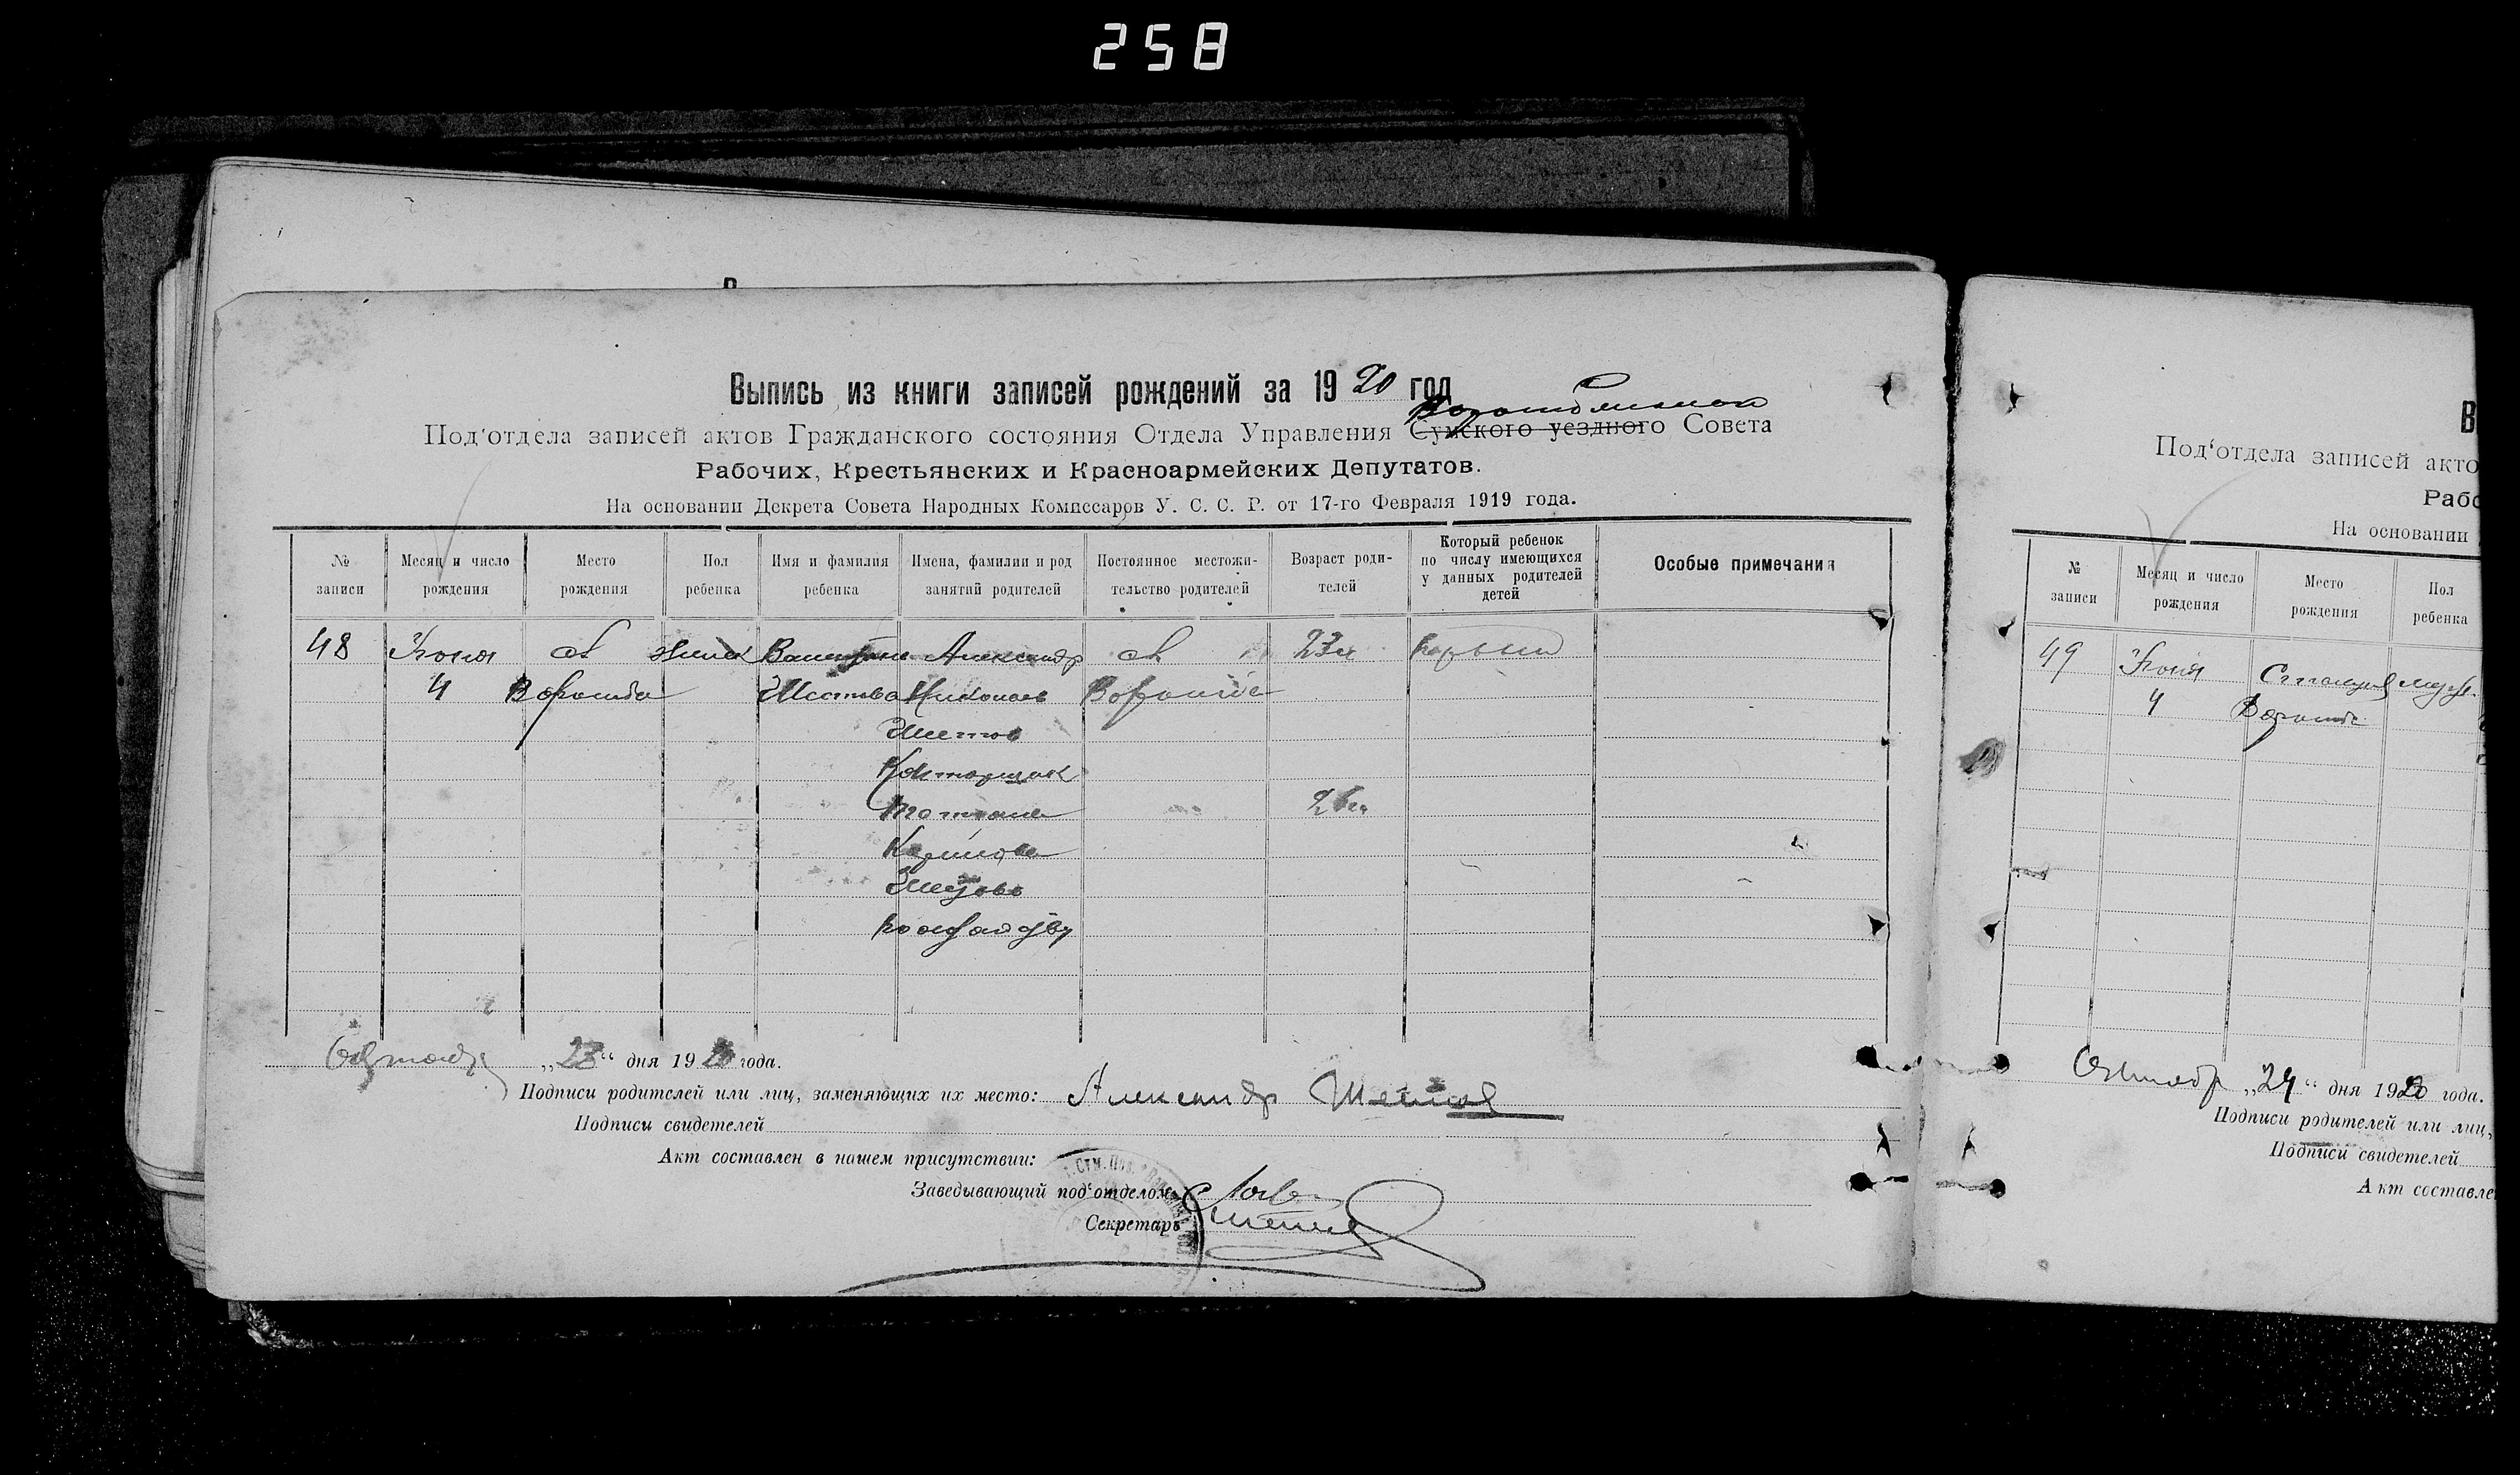 258
Выпись из книги записей рождений за 1920 год
Под‘отдела записей актов Гражданского состояния Отдела Управления Сумского уездного Совета
Рабочих, Крестьянских и Красноармейских Депутатов.
На основании Декрета Совета Народных Комиссаров У. С. С. Р. от 17-го Февраля 1919 года.
№ записи
Месяц и число рождения
Место рождения
Пол ребенка
Имя и фамилия ребенка
Имена, фамилии и род занятий родителей
Постоянное местожительство родителей
Возраст родителей
Который ребенок по числу имеющихся у данных родителей детей
Особые примечания
48 Июня сл женск Александр сл 23 первый
4 Ворожба Николаев Ворожба
26
„23“ дня 1920 года.
Подписи родителей или лиц, заменяющих их место: Александр
Подписи свидетелей
Акт составлен в нашем присутствии:
Заведывающий под‘отделом
Секретарь
В
Под‘отдела записей акто
Рабо
На основании
№ записи
Месяц и число рождения
Место рождения
Пол ребенка
49 Июня Станция муж.
4 Ворожба
Октября „24“ дня 1920 года.
Подписи родителей или лиц,
Подписи свидетелей
Акт составле